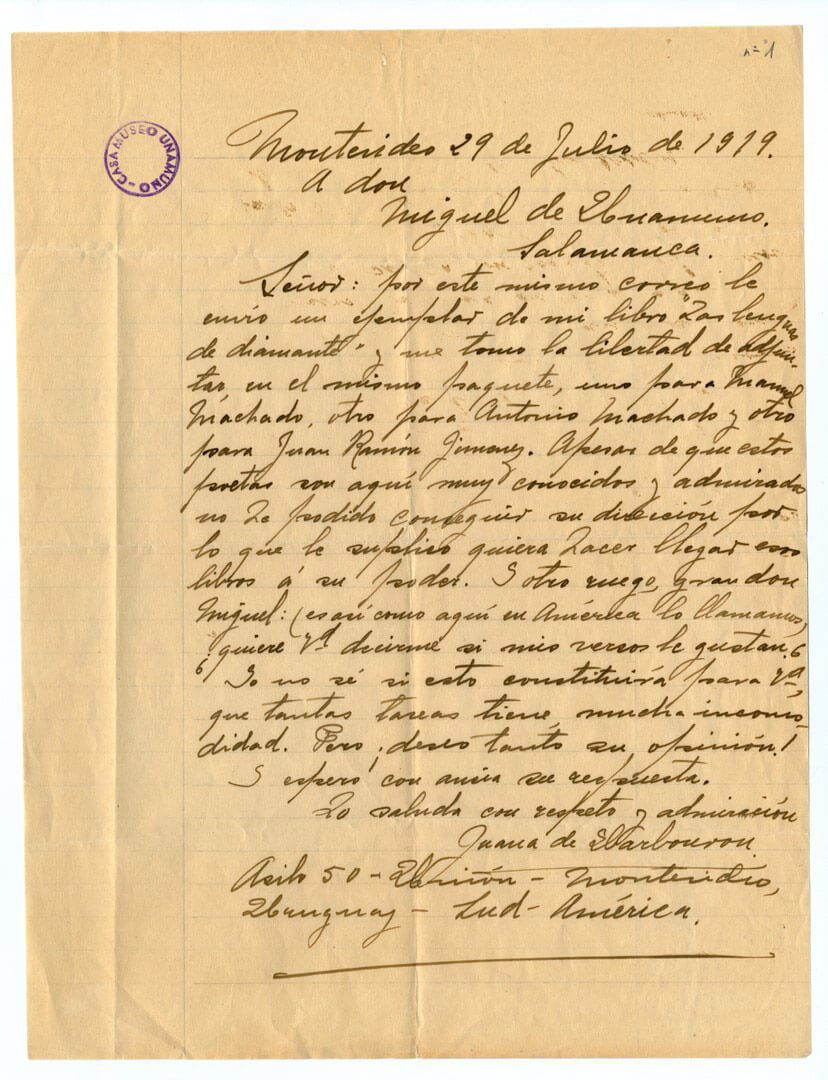 nº 1
CASA MUSEO UNAMUNO
Montevideo 29 de Julio de 1919.
A don
Miguel de Unamuno.
Salamanca.
Señor: por este mismo correo le
envío un ejemplar de mi libro "Las lenguas
de diamante" y me tomo la libertad de adjun-
tar, en el mismo paquete, uno para Manuel
Machado, otro para Antonio Machado y otro
para Juan Ramón Jimenez. Apesar de que estos
poetas son aquí muy conocidos y admirados
no he podido conseguir su dirección por
lo que le suplico quiera hacer llegar esos
libros á su poder. Y otro ruego, gran don
Miguel: (es así como aquí en América lo llamamos)
¿quiere Vd decirme si mis versos le gustan?
Yo no sé si esto constituirá para Vd,
que tantas tareas tiene, mucha incomo-
didad. Pero ¡deseo tanto su opinión!
Y espero con ansia su respuesta.
Lo saluda con respeto y admiración
Juana de Ibarbourou.
Asilo 50 - Unión - Montevideo,
Uruguay - Sud-América.